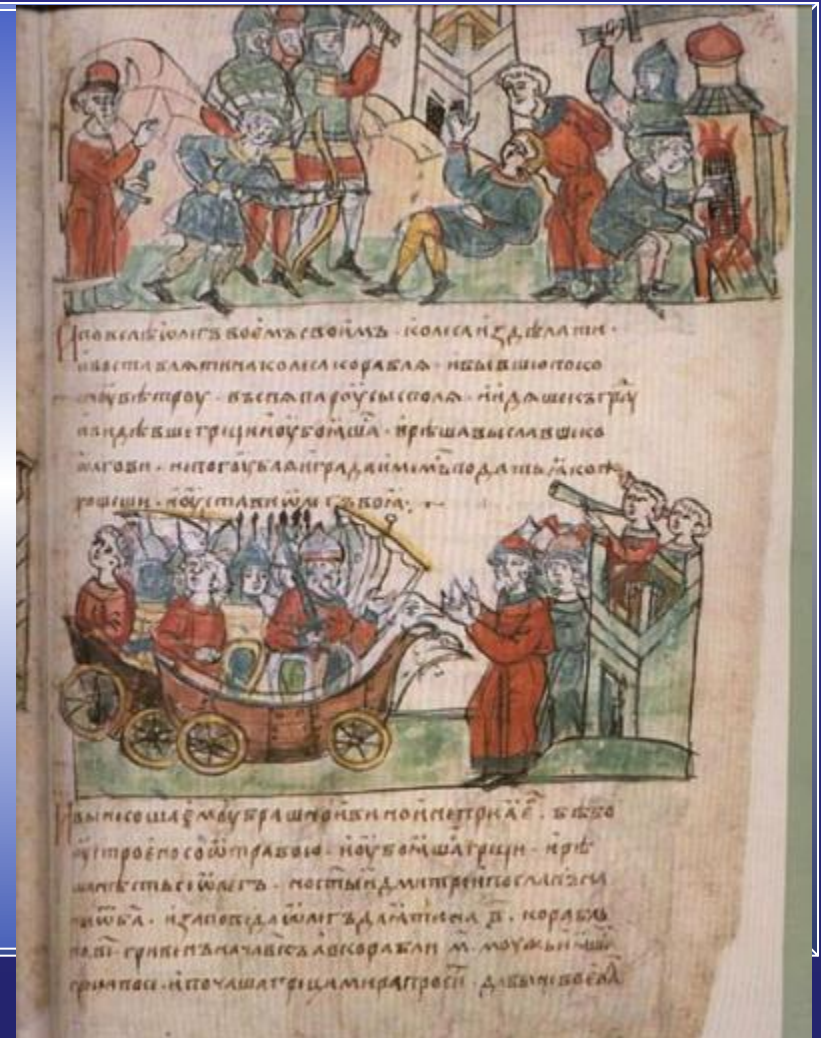 И повелѣ ѡлегъ воемъ своимъ · колеса издѣлати ·
и воставляти на колеса корабля · и бывшю поко
ноу вѣтроу · въспя пароусы с поля · и идяше къ гра
и видѣвше грѣци и оубоѩшаⷭ · и рѣша выславше ко
ѡлгови · не погоублѧи града имемъ подать ꙗко
хощеши · и оустави ѡлегъ воѧ ·
И вынесоша емоу брашно и вино и не приꙗ е · бѣ бо
оустроено со ѡтравою · и оубоꙗшаⷭ грѣци · и рѣ
нѣсть се ѡлегъ · но стыи дмитреи посланъ на
ѿ ба · и заповѣда ѡлегъ даꙗти на в҃ · корабль
по в҃і · гривенъ на а въ корабли м҃ · моужь
и почаша грѣци мира просити дабы не воевал